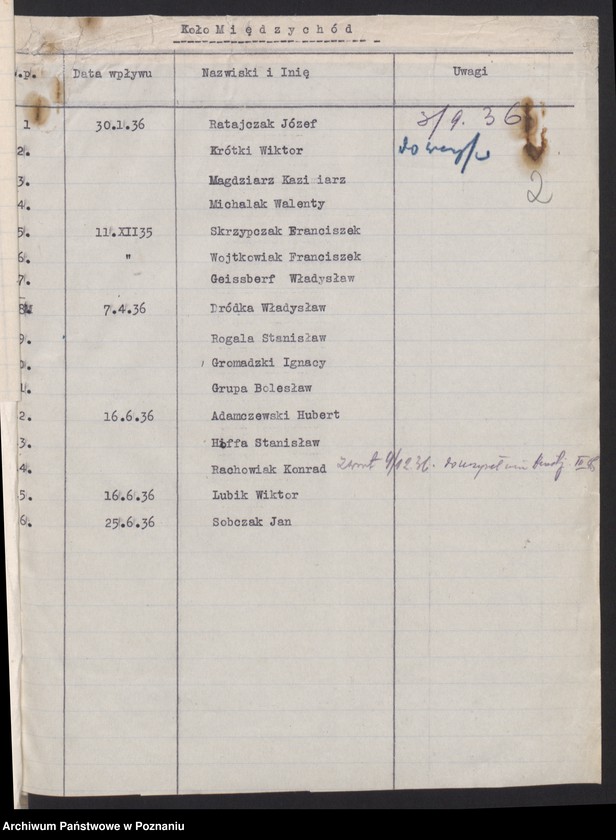 Koło Międzychód
.p. Data wpływu Nazwiski i Inię Uwagi
1 30.1.36 Ratajczak Józef 3/9.36
2. Krótki Wiktor
3. Magdziarz Kazi iarz 2
4. Michalak Walenty
5. 11.XII35 Skrzypczak Franciszek
6. " Wojtkowiak Franciszek
7. Geissberf Władysław
8 7.4.36 Dródka Władysław
9. Rogala Stanisław
0. Gromadzki Ignacy
1. Grupa Bolesław
2. 16.6.36 Adamczewski Hubert
3. Hoffa Stanisław
4. Rachowiak Konrad zwrot 9/12 36.
5. 16.6.36 Lubik Wiktor
6. 25.6.36 Sobczak Jan
Archiwum Państwowe w Poznaniu